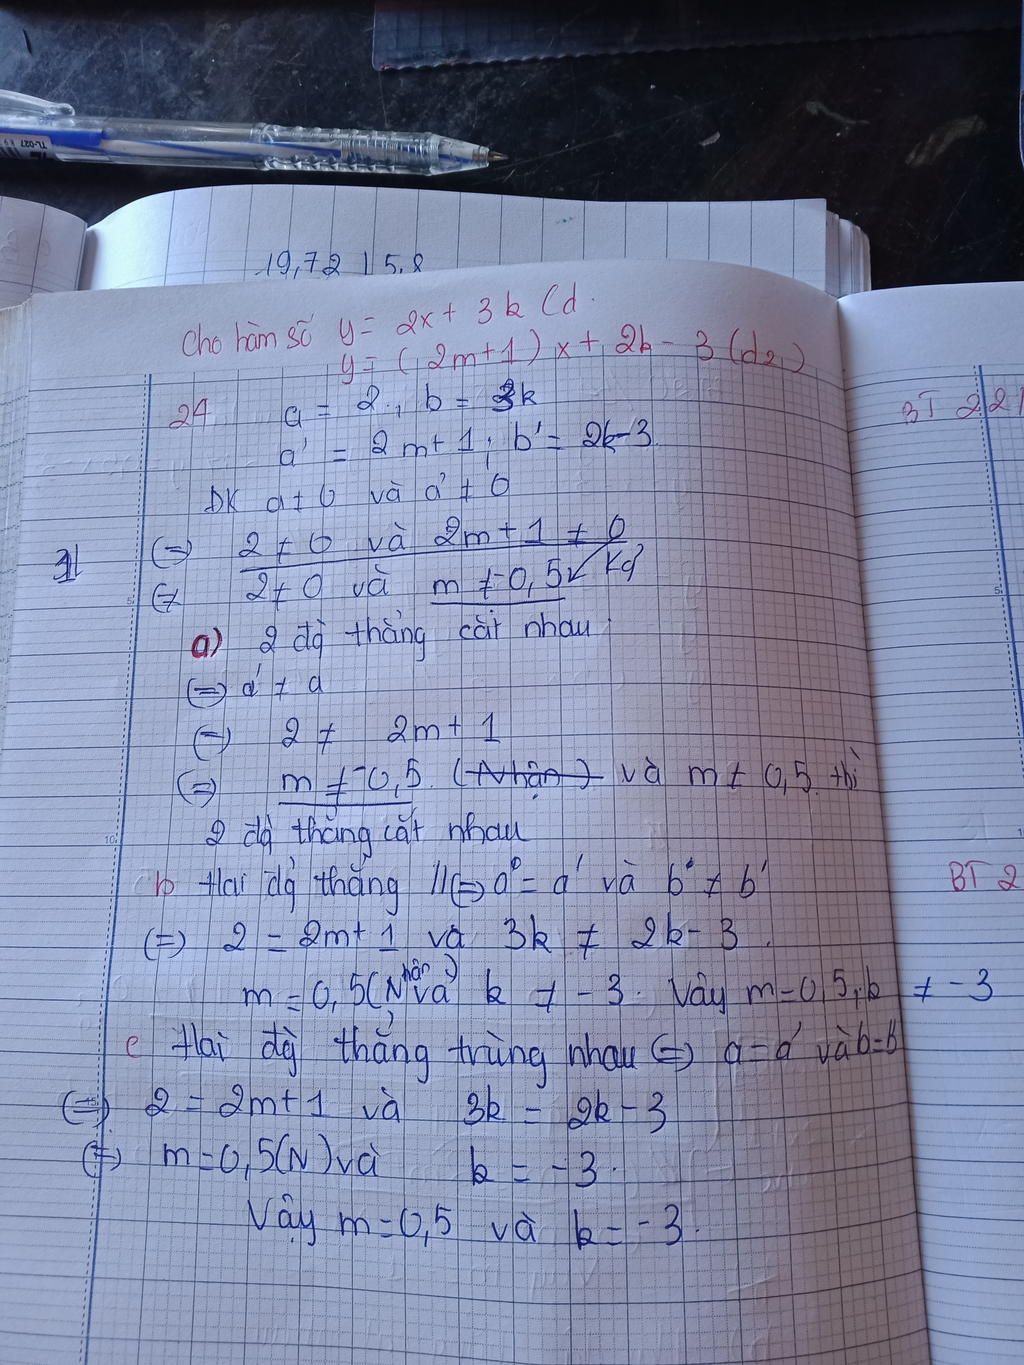 TL-027
19,72 | 5,8
Cho hàm số y = 2x + 3k (d
y = (2m+1)x + 2k - 3 (d2)
24 a = 2; b = 3k
a' = 2m+1; b' = 2k-3
ĐK a ≠ 0 và a' ≠ 0
(=) 2 ≠ 0 và 2m+1 ≠ 0
2 ≠ 0 và m ≠ -0,5
a) 2 đg thẳng cắt nhau
(=) a' ≠ a
(=) 2 ≠ 2m+1
(=) m ≠ -0,5 (Nhận) và m ≠ 0,5 thì
2 đg thẳng cắt nhau
b Hai đg thẳng // (=) a = a' và b ≠ b'
(=) 2 = 2m+1 và 3k ≠ 2k-3
m = 0,5 (Nhận) và k ≠ -3. Vậy m=0,5; k ≠ -3
c Hai đg thẳng trùng nhau (=) a=a' và b=b'
(=) 2 = 2m+1 và 3k = 2k-3
(=) m=0,5(N) và k = -3.
Vậy m=0,5 và k = -3.
BT 2
BT 2